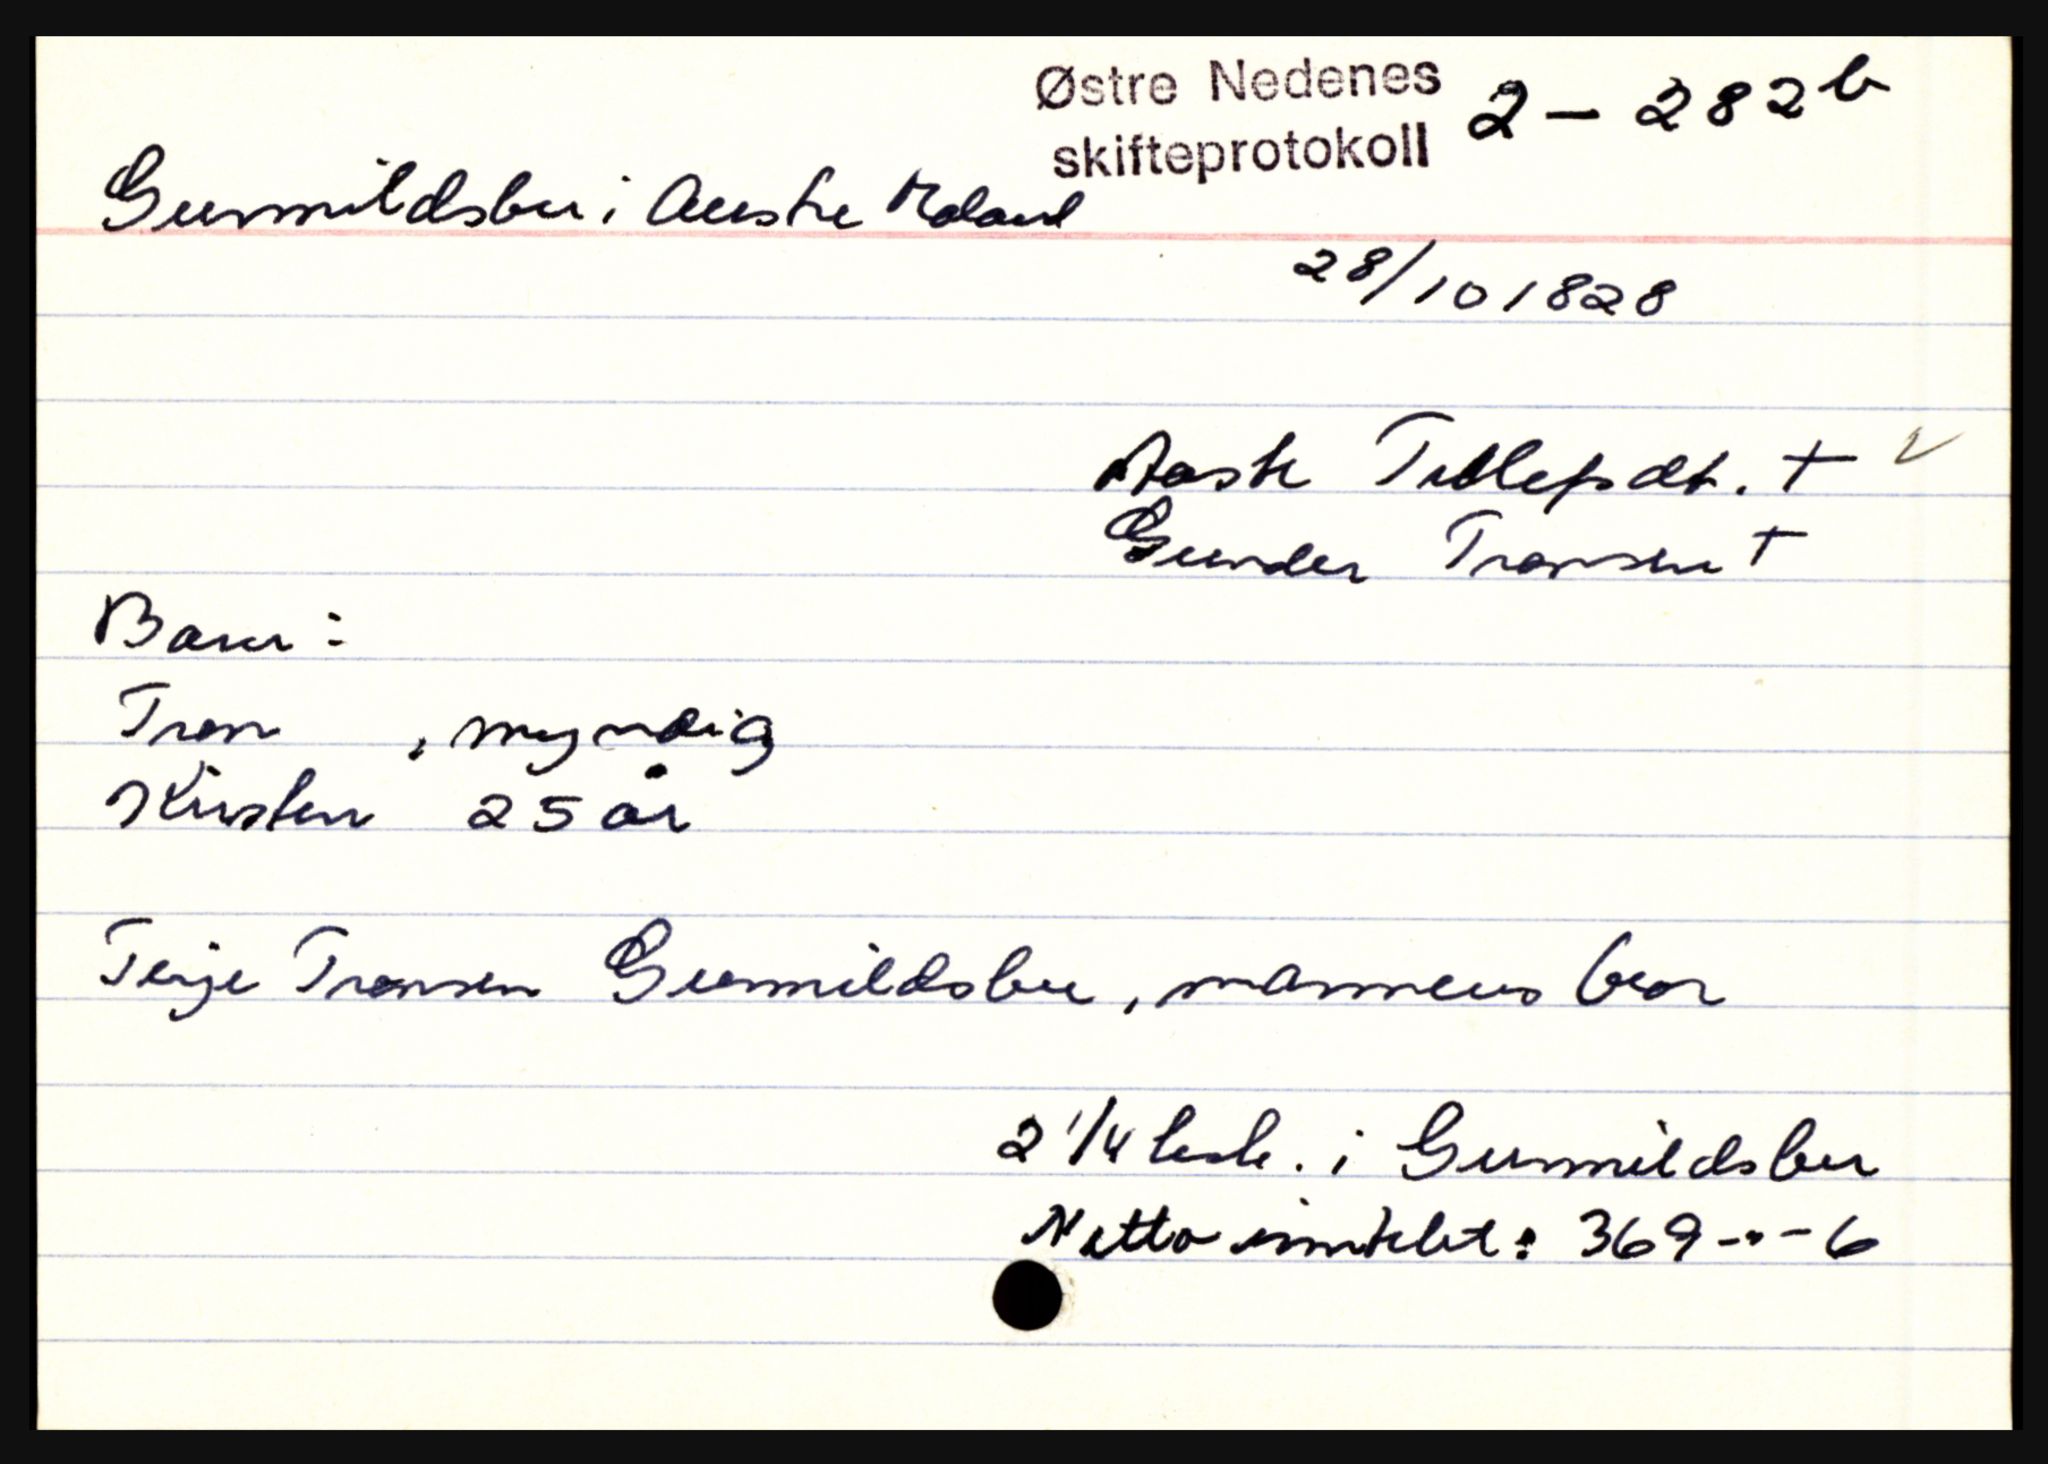 Østre Nedenes
skifteprotokoll 2 - 282 b
Gunnildsbu i Austre Moland
28/10 1828
Aaste Tellefsdt. †
Gunder Tronsen †
Barn:
Tron , myndig
Kirsten 25 år
Terje Tronsen Gunnildsbu, mannens bror
2 1/4 i Gunnildsbu
Netto : 369-"-6